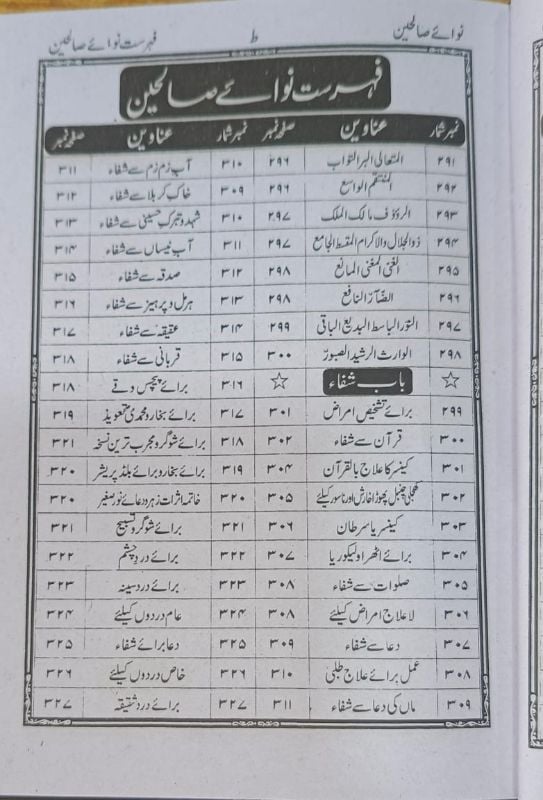 نوائے صالحین ط فہرست نوائے صالحین
فہرست نوائے صالحین
نمبر شمار عناوین صفحہ نمبر نمبر شمار عناوین صفحہ نمبر
۲۹۱ المتعالی البر التواب ۲۹۶ ۳۱۰ آب زم زم سے شفاء ۳۱۱
۲۹۲ المنتقم الواسع ۲۹۶ ۳۰۹ خاک کربلا سے شفاء ۳۱۲
۲۹۳ الرؤوف مالک الملک ۲۹۷ ۳۱۰ شہد و تبرک حسینی سے شفاء ۳۱۳
۲۹۴ ذوالجلال والاکرام المقسط الجامع ۲۹۷ ۳۱۱ آب نیساں سے شفاء ۳۱۴
۲۹۵ الغنی المغنی المانع ۲۹۸ ۳۱۲ صدقہ سے شفاء ۳۱۵
۲۹۶ الضآرّ النافع ۲۹۸ ۳۱۳ ہرمل و پرہیز سے شفاء ۳۱۶
۲۹۷ النور الباسط البدیع الباقی ۲۹۹ ۳۱۴ عقیقہ سے شفاء ۳۱۷
۲۹۸ الوارث الرشید الصبور ۳۰۰ ۳۱۵ قربانی سے شفاء ۳۱۸
☆ باب شفاء ☆ ۳۱۶ برائے پیچس وقے ۳۱۸
۲۹۹ برائے تشخیص امراض ۳۰۱ ۳۱۷ برائے بخار و محمدی تعویذ ۳۱۹
۳۰۰ قرآن سے شفاء ۳۰۲ ۳۱۸ برائے شوگر و مجرب ترین نسخہ ۳۲۱
۳۰۱ کینسر کا علاج بالقرآن ۳۰۴ ۳۱۹ برائے بخار و برائے بلڈ پریشر ۳۲۰
۳۰۲ کھجلی چنبل پھوڑا خارش اور ناسور کیلئے ۳۰۵ ۳۲۰ خاتمہ اثرات زہر و دعائے نور صغیر ۳۲۰
۳۰۳ کینسر یا سرطان ۳۰۶ ۳۲۱ برائے شوگر و تسبیح ۳۲۱
۳۰۴ برائے اٹھرا و لیکوریا ۳۰۷ ۳۲۲ برائے درد چشم ۳۲۲
۳۰۵ صلوات سے شفاء ۳۰۸ ۳۲۳ برائے درد سینہ ۳۲۳
۳۰۶ لا علاج امراض کیلئے ۳۰۸ ۳۲۴ عام دردوں کیلئے ۳۲۴
۳۰۷ دعا سے شفاء ۳۰۹ ۳۲۵ دعا برائے شفاء ۳۲۵
۳۰۸ عمل برائے علاج طلبی ۳۱۰ ۳۲۶ خاص دردوں کیلئے ۳۲۶
۳۰۹ ماں کی دعا سے شفاء ۳۱۱ ۳۲۷ برائے درد شقیقہ ۳۲۷